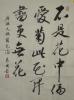 不是花中偏
愛菊此花開
盡更無花